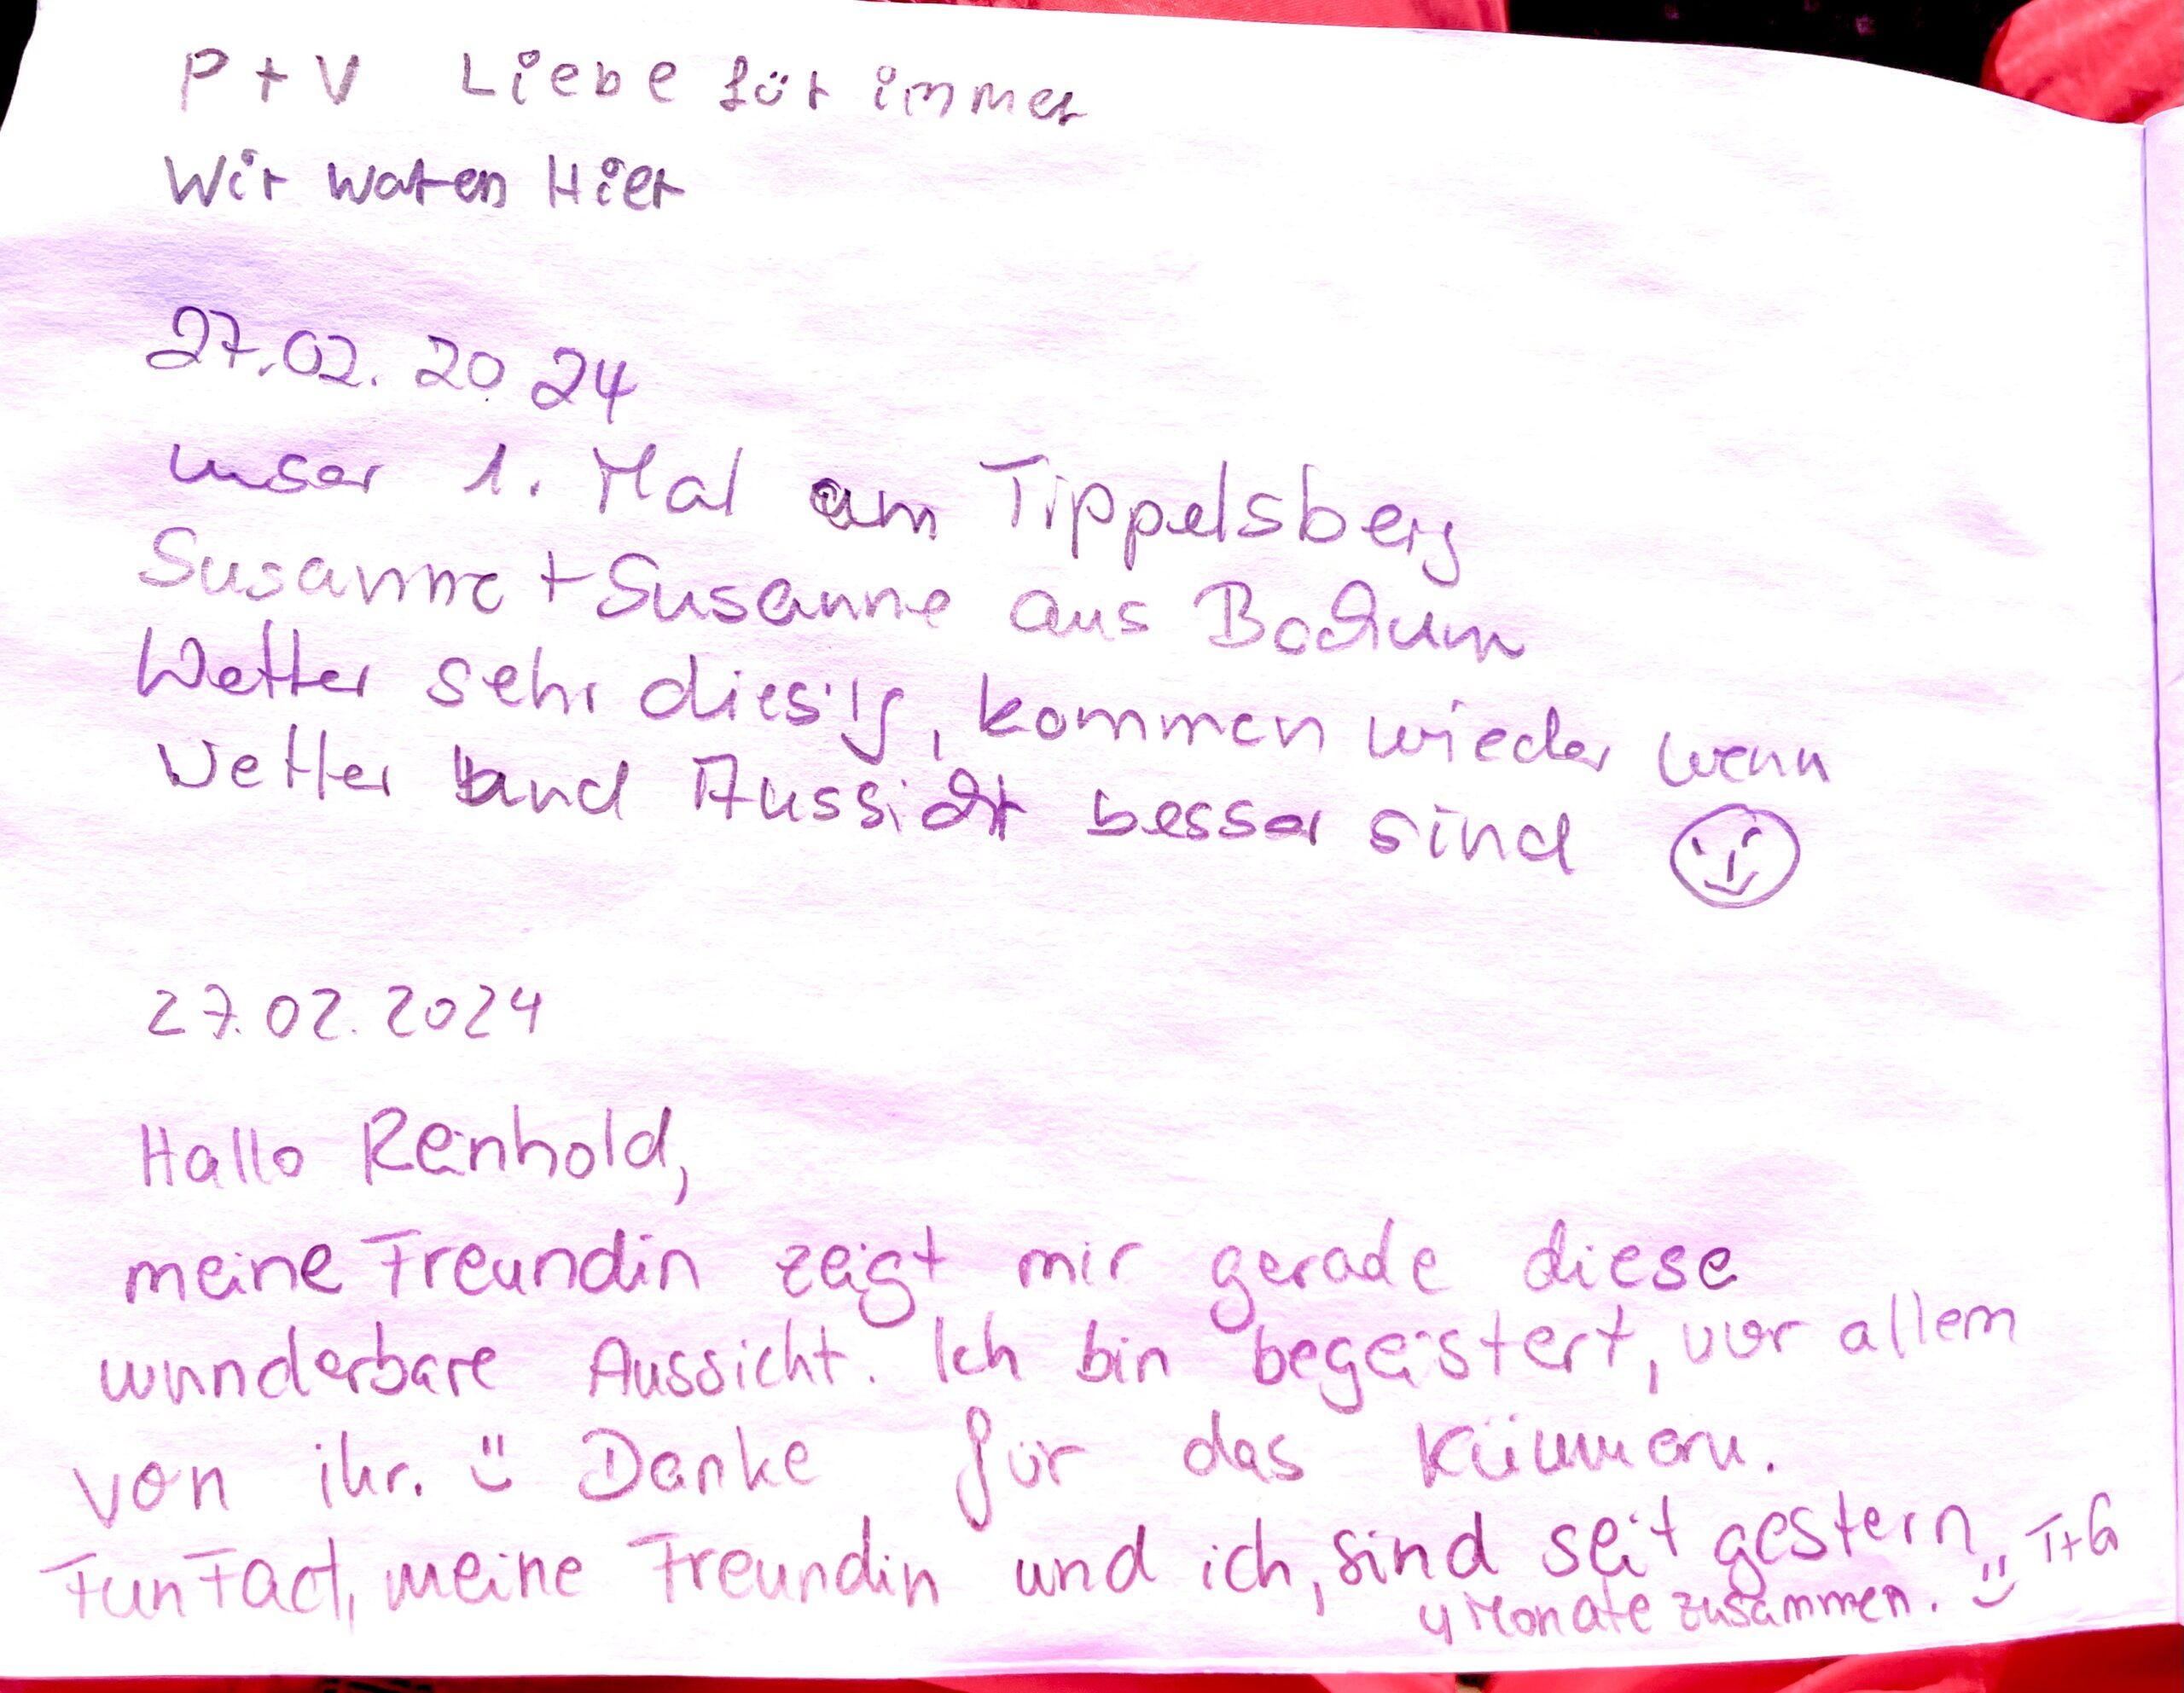 P + V Liebe für immer
Wir waren Hier
27.02.2024
unser 1. Mal am Tippelsberg
Susanne + Susanne aus Bochum
Wetter sehr diesig, kommen wieder wenn
Wetter und Aussicht besser sind
27.02.2024
Hallo Renhold,
meine Freundin zeigt mir gerade diese
wunderbare Aussicht. Ich bin begeistert, vor allem
von ihr. Danke für das Kümmern.
Fun Fact, meine Freundin und ich, sind seit gestern
4 Monate zusammen. T+G